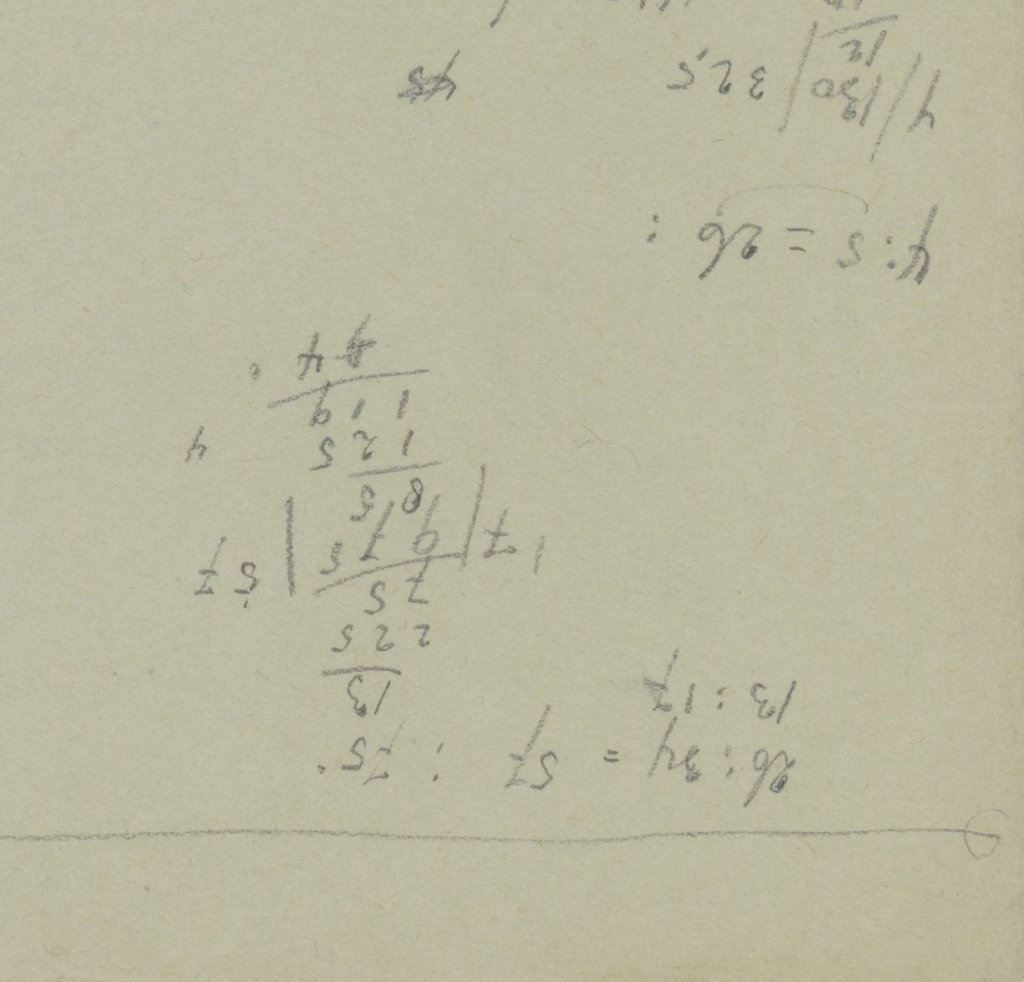 26 : 34 = 57 : 75.
13 : 17 13
225
75
17 | 975 | 57
85
125 4
119
44
4 : 5 = 26 :
4 / 130 | 32.5
12